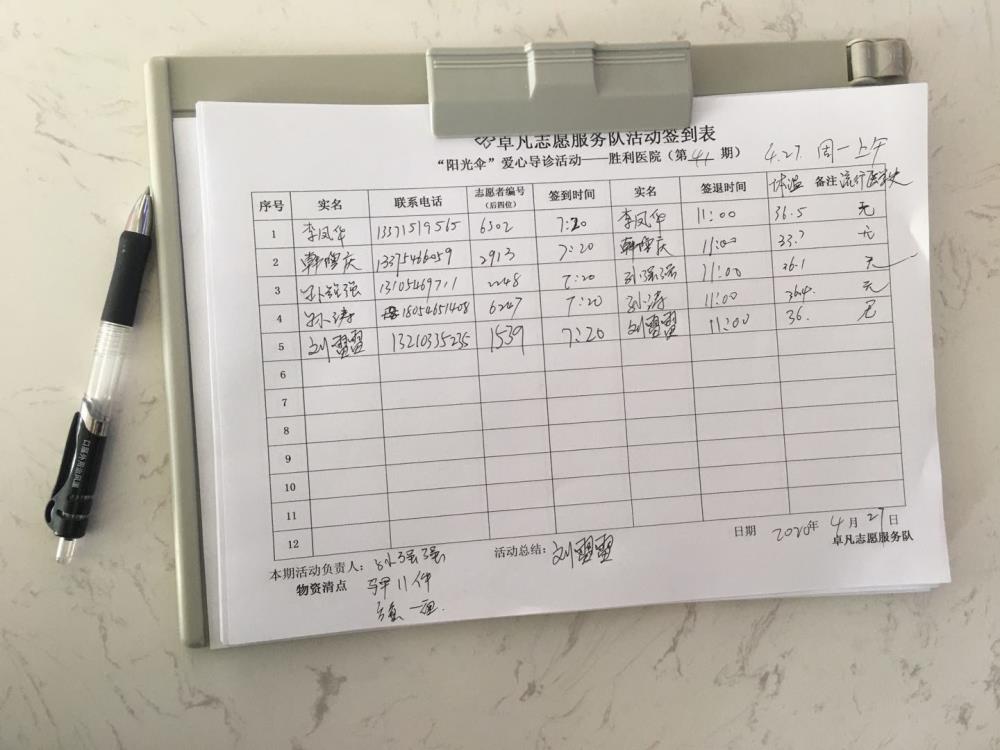 卓凡志愿服务队活动签到表
“阳光伞”爱心导诊活动——胜利医院（第44期） 4.27. 周一上午
序号 实名 联系电话 志愿者编号（后四位） 签到时间 实名 签退时间 体温 备注 流行医学史
1 李凤华 13371519565 6302 7:20 李凤华 11:00 36.5 无
2 韩隆庆 13375466059 2913 7:20 韩隆庆 11:00 33.7 无
3 孙强强 13105469711 2248 7:20 孙强强 11:00 36.1 无
4 孙涛 18054651408 6247 7:20 孙涛 11:00 36.4 无
5 刘翠翠 13210335235 1539 7:20 刘翠翠 11:00 36. 无
6
7
8
9
10
11
12
本期活动负责人：孙强强 活动总结：刘翠翠 日期 2020年4月27日
物资清点 马甲11件 卓凡志愿服务队